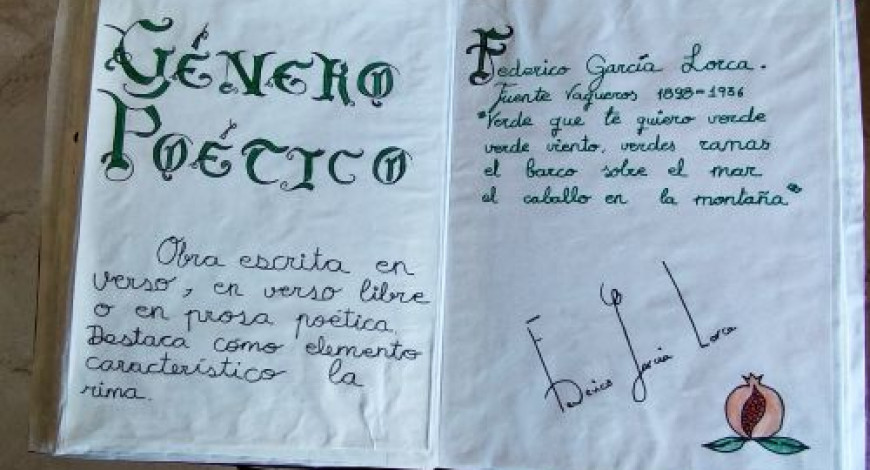 GÉNERO
POÉTICO
Obra escrita en
verso, en verso libre
o en prosa poética.
Destaca como elemento
característico la
rima.
Federico García Lorca.
Fuente Vaqueros 1898-1936
"Verde que te quiero verde
verde viento, verdes ramas
el barco sobre el mar
el caballo en la montaña"
Federico García Lorca